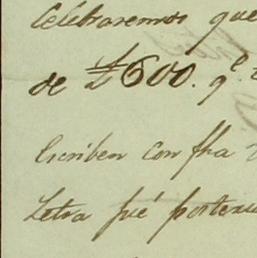 Celebraremos que
de £600. qe.
Escriben con fha
Letra fué pertene